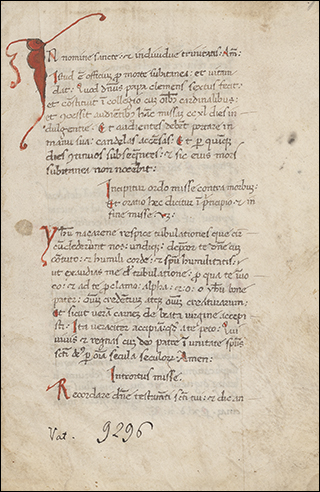 In nomine sancte et individue trinitatis: Am:
Istud e officiu p morte subitanea: et vitan
dat: Quod dns papa clemens sextus fecit:
et costituit i collegio cu oibus cardinalibus:
et concessit audietibus hac missa ccxl dies in
dulgentie: Et audientes debet portare in
manu sua candela accesa: Et p quiq
dies continuos subsequetes: et sic eius mors
subitanea non nocebit:
Incipit ordo misse contra morbu:
Et oratio hec dicitur i pricipio et in
fine misse: vz:
Yhu nazarene respice tribulationes que cir
cudederunt nos: undiq: depcor te dne cu
cotrito: et humili corde: et spu humilitatis:
ut exaudias me et tribulatione: p qua te ivo
co: et ad te pclamo: alpha: et o: o yhu bone
pater:
Et sicut vera carne de beata virgine accepi
sti: Ita veraciter accipia qd a te peto: Qui
vivis et regnas cu deo patre i unitate spus
scti ds p oia secula seculor: Amen:
Introitus misse.
Recordare dne testameti scti tui: et dic an
Vat. 9296